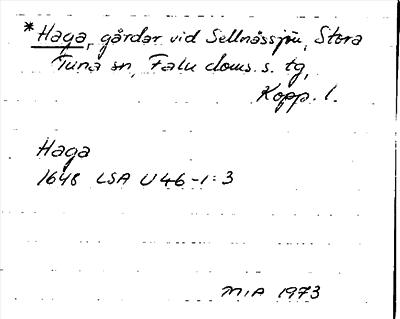 *Haga, gårdar vid Sellnässjön, Stora
Tuna sn, Falu doms. s. tg,
Kopp. l.
Haga
1648 LSA U46-1:3
MIA 1973